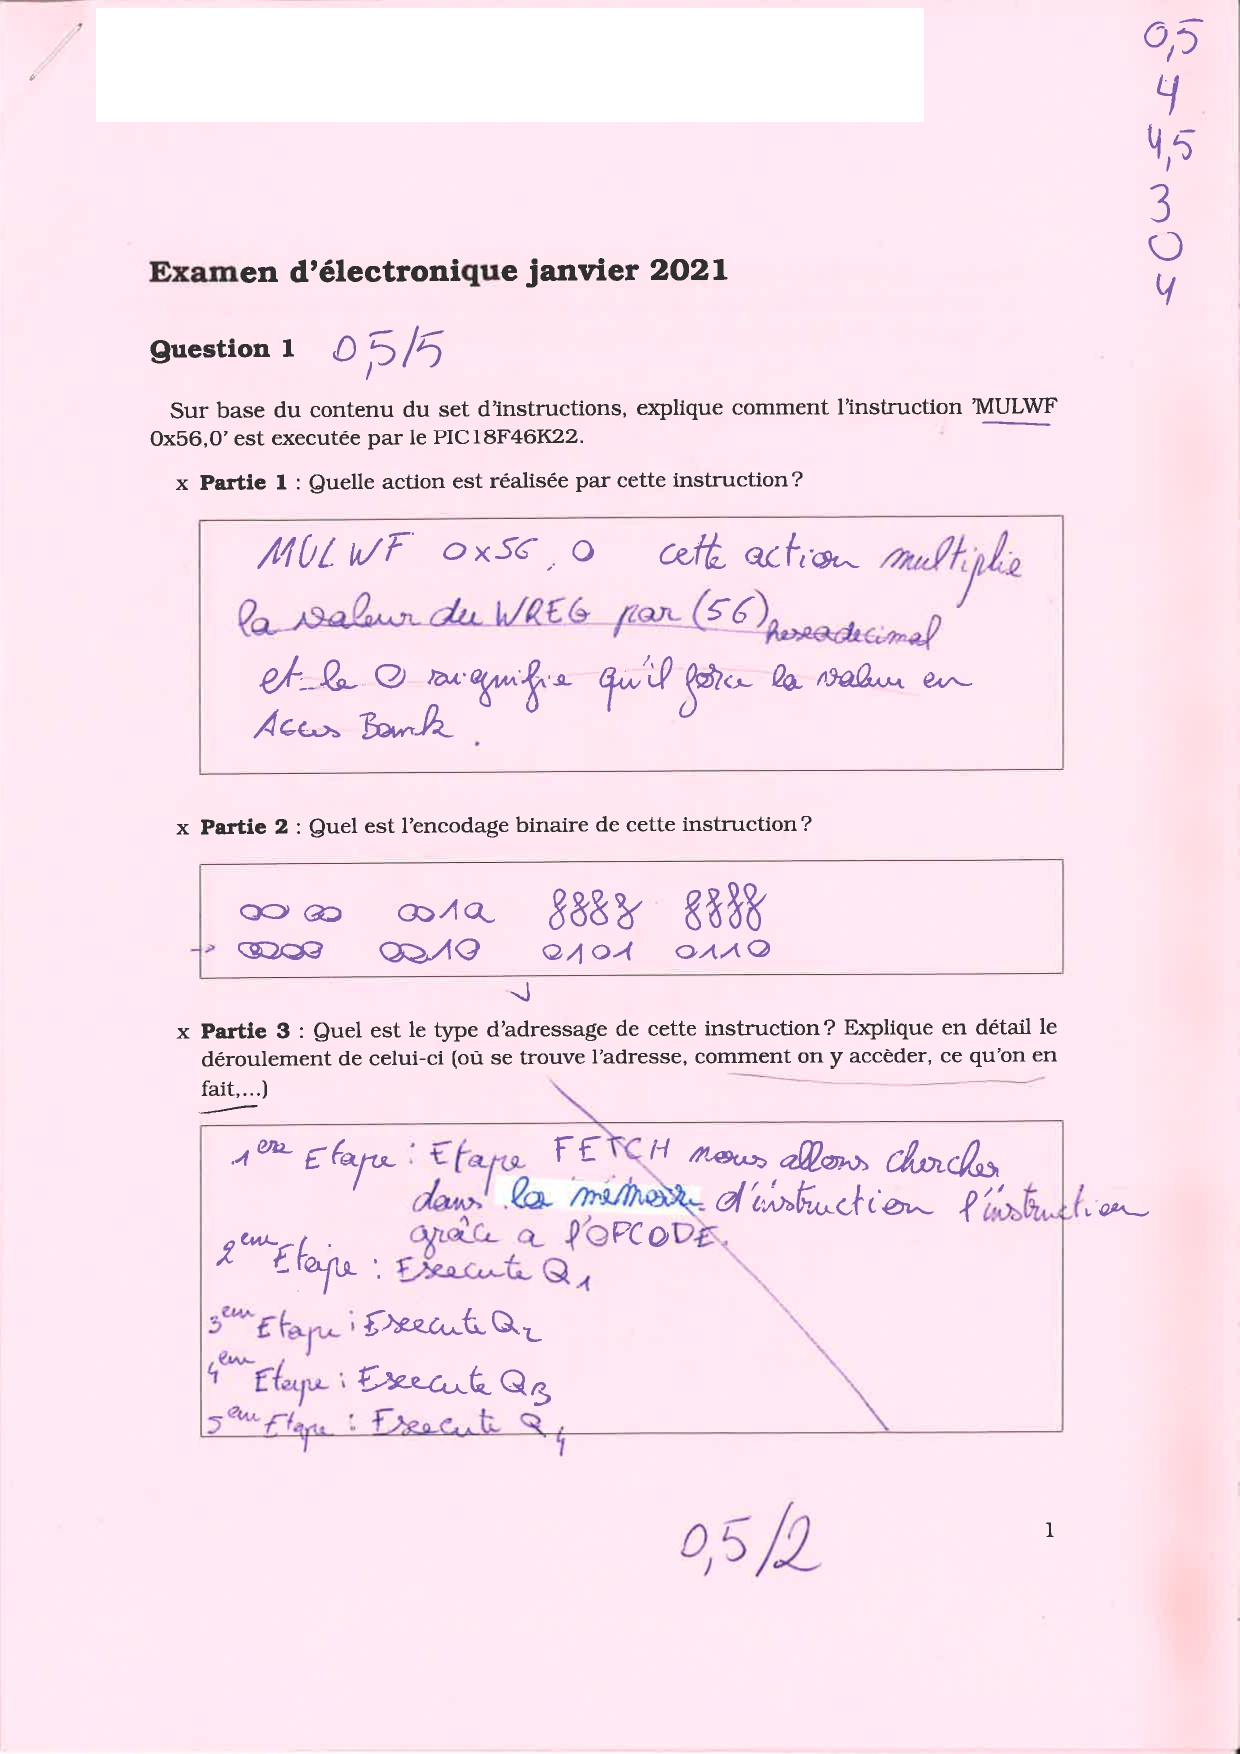 0,5
4
4,5
3
0
4
Examen d'électronique janvier 2021
Question 1 0,5/5
Sur base du contenu du set d'instructions, explique comment l'instruction 'MULWF
0x56,0' est executée par le PIC18F46K22.
x Partie 1 : Quelle action est réalisée par cette instruction ?
MULWF 0x56,0 cette action multiplie
la valeur du WREG par (56) hexadecimal
et le 0 signifie qu'il force la valeur en
Acces Bank.
x Partie 2 : Quel est l'encodage binaire de cette instruction ?
0000 001a ffff ffff
→ 0000 0010 0101 0110
x Partie 3 : Quel est le type d'adressage de cette instruction ? Explique en détail le
déroulement de celui-ci (où se trouve l'adresse, comment on y accèder, ce qu'on en
fait,...)
1ere Etape : Etape FETCH nous allons chercher
dans la mémoire d'instruction l'instruction
grâce a l'OPCODE.
2eme Etape : Execute Q1
3eme Etape : Execute Q2
4eme Etape : Execute Q3
5eme Etape : Execute Q4
0,5/2
1